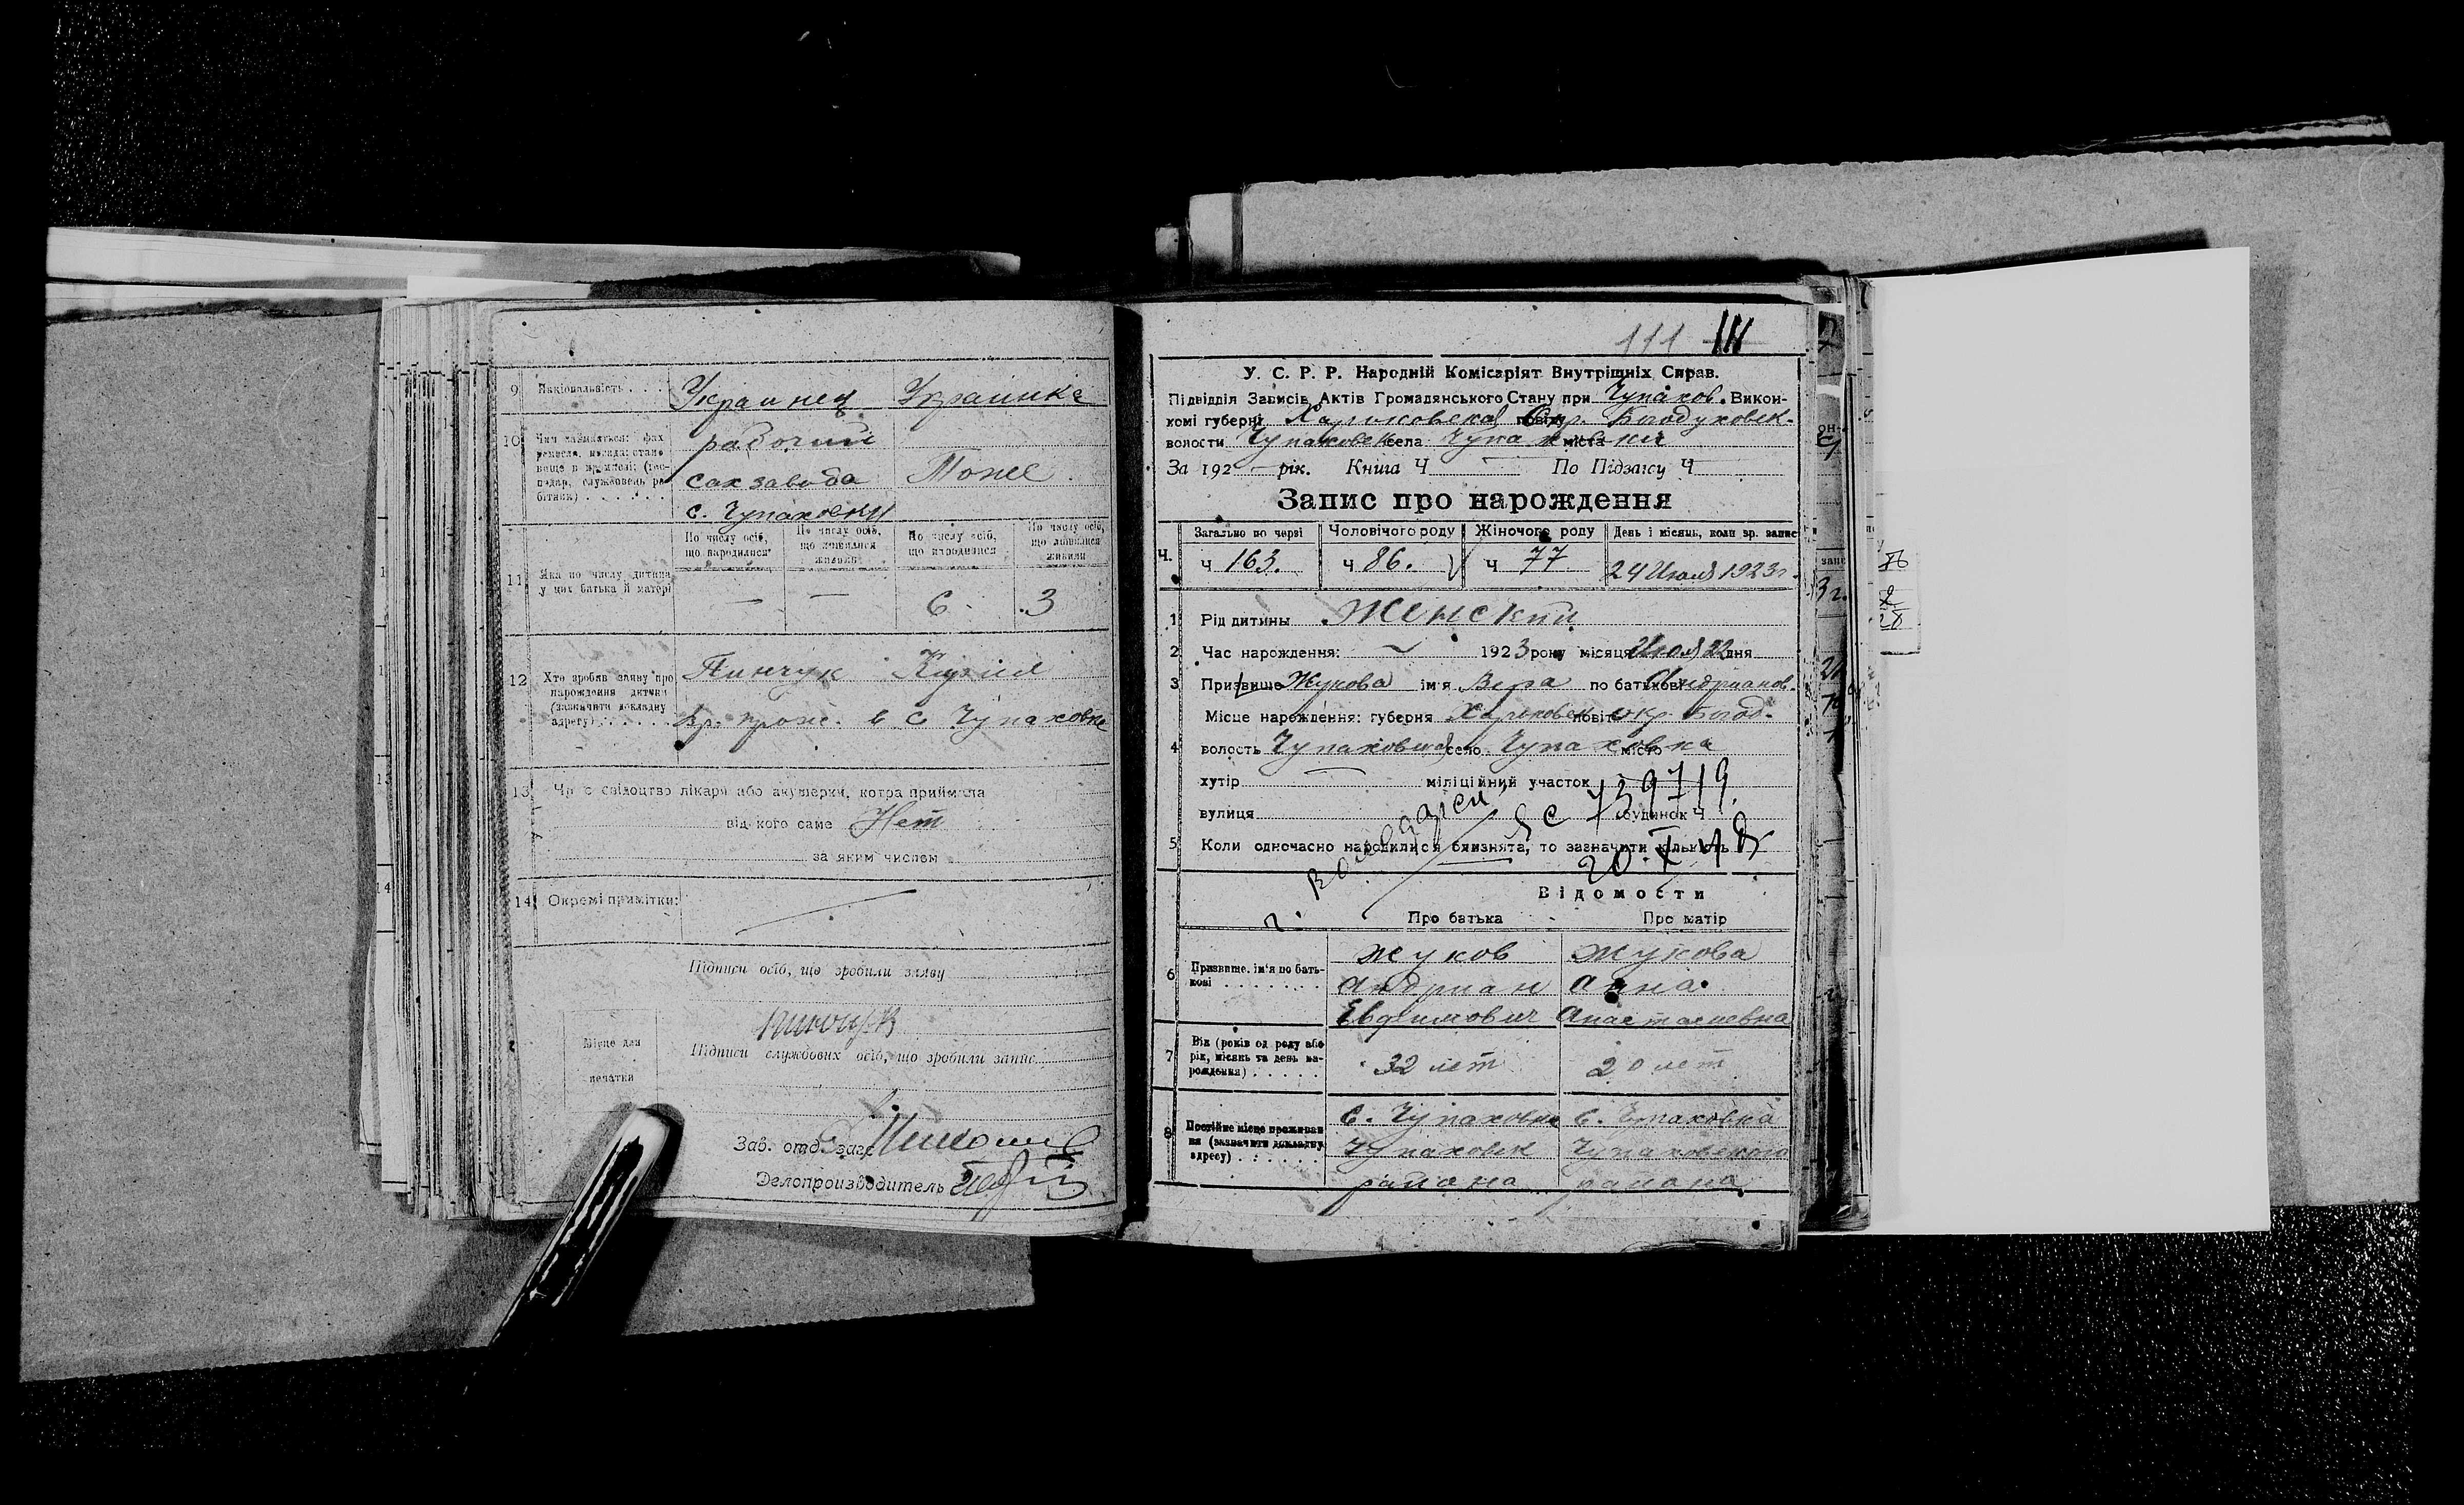 9 Національність . . . Украинец Украинка
10 Чим займається: фах рабочий
ремесла, посада; стано-
вище в промислі: (гос-
подар, служовець ро- сахзавода Тоже
бітник) . . . . . . с. Чупаховки
По числу осіб, що народилися По числу осіб, що лишилися живими По числу осіб, що народилися По числу осіб, що лишилися живими
11 Яка по числу дитина
у цих батька й матері — — 6 3
12 Хто зробив заяву про Пинчук
нарождення дитини
(зазначити докладну
адресу) . . . . . прож. в с Чупаховке
13 Чи є свідоцтво лікаря або акушерки, котра приймала
від кого саме Нет
за яким числом
14 Окремі примітки:
Підписи осіб, що зробили заяву
Підписи службових осіб, що зробили запис
Місце для
печатки
Зав. отд. загс
Делопроизводитель
111 111
У. С. Р. Р. Народній Комісаріят Внутрішніх Справ.
Підвідділ Записів Актів Громадянського Стану при Чупахов. Викон-
комі губерні Харьковской повіт Окр. Богодуховск.
волости Чупаховск села Чупаховки міста
За 192 — рік. Книга Ч — По Підзапису Ч
Запис про нарождення
Загально по черзі Чоловічого роду Жіночого роду День і місяць, коли зр. запис
Ч. ч 163. ч 86. ч 77 24 Июля 1923 г.
1 Рід дитины Женский
2 Час нарождення: — 1923 року місяця Июля 22 дня
3 Призвище Жукова ім'я Вера по батькові Андрианов.
Місце нарождення: губерня Харьковск повіт окр Богод.
4 волость Чупаховская село Чупаховка місто
хутір — міліційний участок
739719.
вулиця будинок Ч
5 Коли одночасно народилися близнята, то зазначити кількість
20.X
Відомости
Про батька Про матір
6 Призвище, ім'я по бать-
кові . . . . . . .
Жуков Жукова
Андриан Анна
Евдокимович Анастасиевна
7 Вік (років од роду або
рік, місяць та день на-
рождення) . . . . . 32 лет 20 лет
8 Постійне місце проживан-
ня (зазначити докладну
адресу) . . . . . .
с. Чупаховка с. Чупаховка
Чупаховск Чупаховского
района района